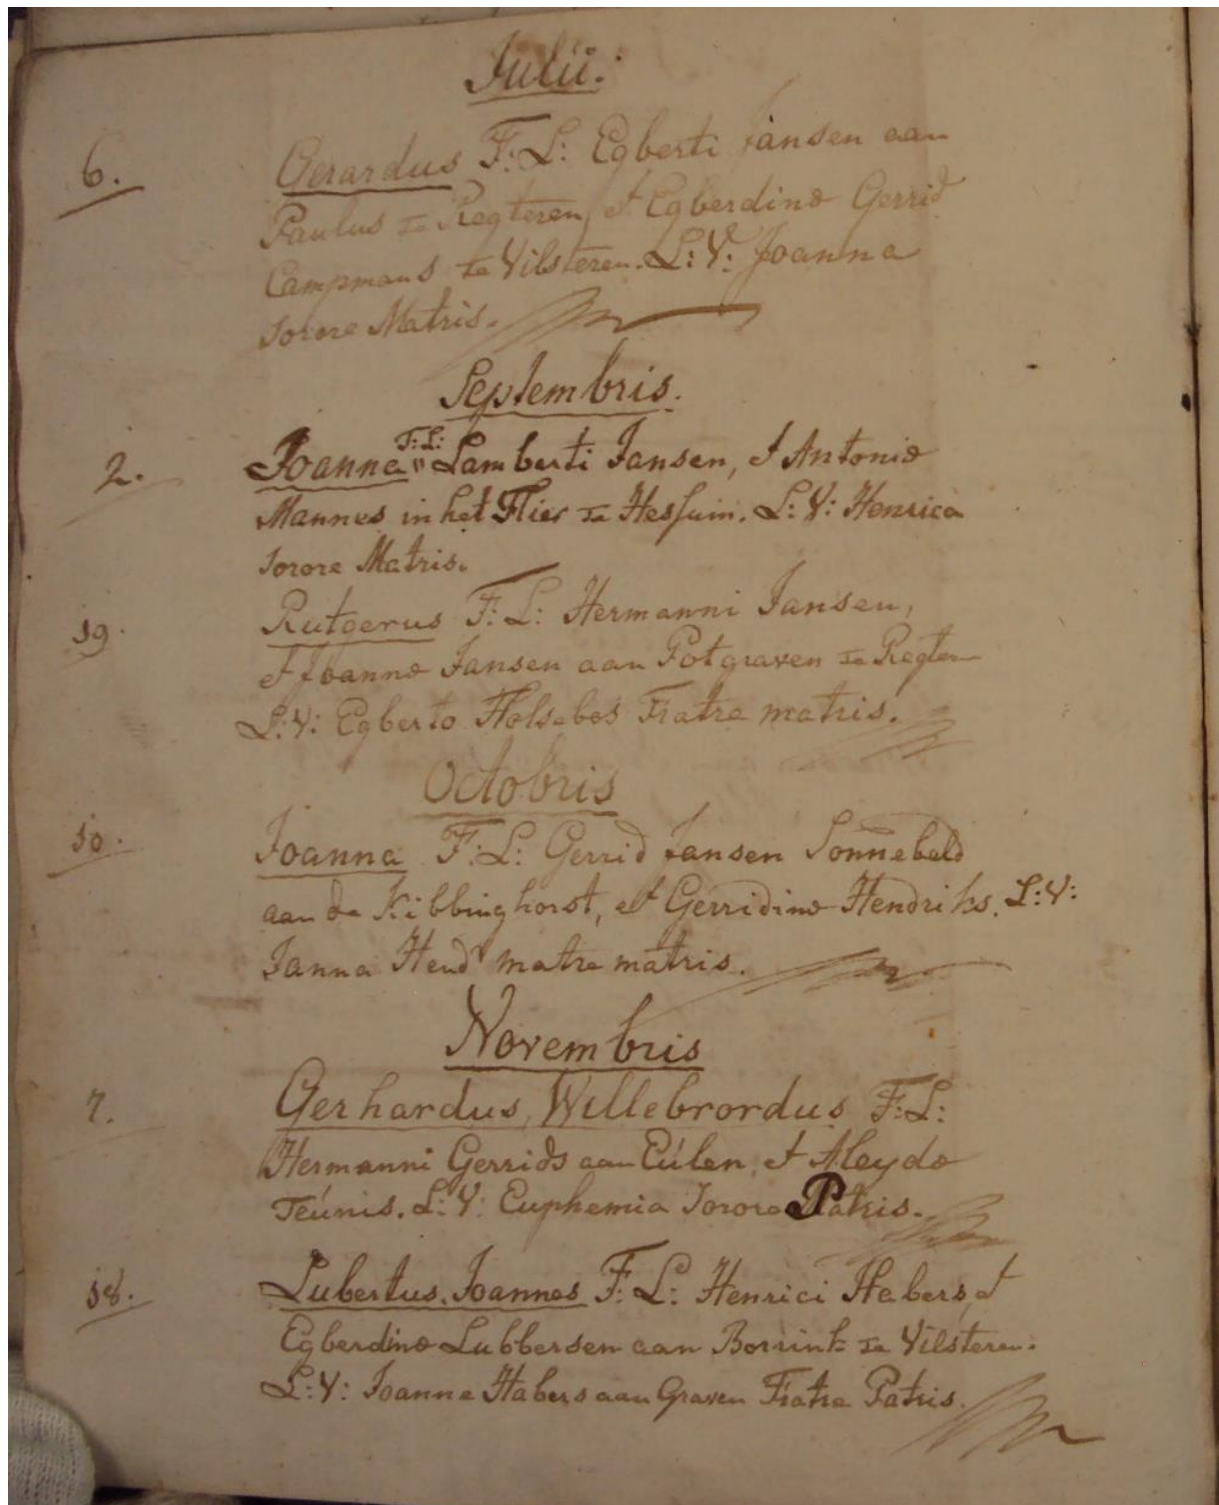 Julii.
6. Gerardus F: L: Egberti Jansen aan
Paulus te Regteren, et Egberdinæ Gerrid
Campmans te Vilsteren. L: V: Joanna
sorore Matris.
Septembris.
2. Joanna F: L: Lamberti Jansen, et Antoniæ
Mannes in het Flier te Hessum. L: V: Henrica
sorore Matris.
19. Rutgerus F: L: Hermanni Jansen,
et Joannæ Jansen aan Potgraven te Regteren
L: V: Egberto Holsebos Fratre matris.
Octobris
10. Joanna F: L: Gerrid Jansen Sonnebeld
aan de Kibbinghorst, et Gerridinæ Hendriks. L: V:
Janna Hend matre matris.
Novembris
7. Gerhardus, Willebrordus F: L:
Hermanni Gerrids aan Eúlen, et Aleydæ
Teúnis. L: V: Euphemia Sorore Patris.
18. Lubertus, Joannes F: L: Henrici Habers, et
Egberdinæ Lubbersen aan Borrink te Vilsteren.
L: V: Joanne Habers aan Graven Fratre Patris.